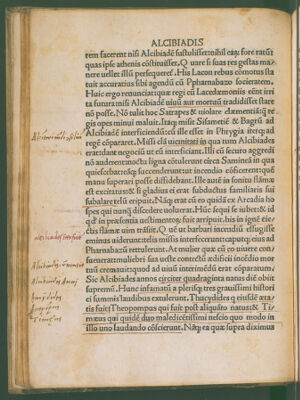 ALCIBIADIS
rem facerent nisi Alcibiadē sustulisset: nihil eaꝝ fore ratū
quas ipse athenis cōstituisset. Quare si suas res gestas ma-
nere uellet illū persequeret̃. His Lacon rebus cōmotus sta
tuit accuratius sibi agendū cū Pharnabazo societatem.
Huic ergo renunciat: quæ regi cū Lacedæmoniis eēnt irri
ta futura: nisi Alcibiadē uiuū aut mortuū tradidisset stare
nō posse. Nō tulit hoc Satrapes & uiolare clæmentiā: q̃ re
gis opes minui maluit. Itaq; misit Sisametrē & Bagoū ad
Alcibiadē interficiendū: cū ille esset in Phrygia iterq; ad
regē cōpararet. Missi clā uicinitati in qua tum Alcibiades
erat dant negociū ut eū interficiant. Illi cū securo aggredi
nō auderent noctu ligna cōtulerunt circa
quiescebat: eāq; succenderunt: ut incendio cōficerent quem
manu superari posse diffidebant. Ille autē in sonitu flāmæ
est excitatus: & si gladius ei erat subductus familiaris sui
subalare telū eripuit. Nāq; erat cū eo quidā ex Arcadia ho
spes qui nunq̃ discedere uoluerat. Hūc sequi se iubet: & id
qđ in præsentia uestimentoꝝ: fuit arripuit. his in ignē eie
ctis flāmæ uim trāsiit. Quē ut barbari incendiū effugisse
eminus uiderunt: telis missis interfecerunt: caputq; eius ad
Pharnabazū rettulerunt. At mulier quæ cū eo uiuere con-
sueuerat: muliebri sua ueste contectū ædificii incēdio mor
tuū cremauit: quod ad uiuū interimēdū erat cōparatum.
Sic Alcibiades annos circiter quadraginta natus diē obiit
supremū. Hunc infamatū a plerisq; tres grauissimi histori
ci summis laudibus extulerunt. Thucydides q̃ eiusdē æta
tis fuit: Theopompus qui fuit post aliquāto natus: & Ti
mæus qui quidē duo maledicētissimi nescio quo modo in
illo uno laudando cōscierunt. Nāq; ea quæ supra diximus